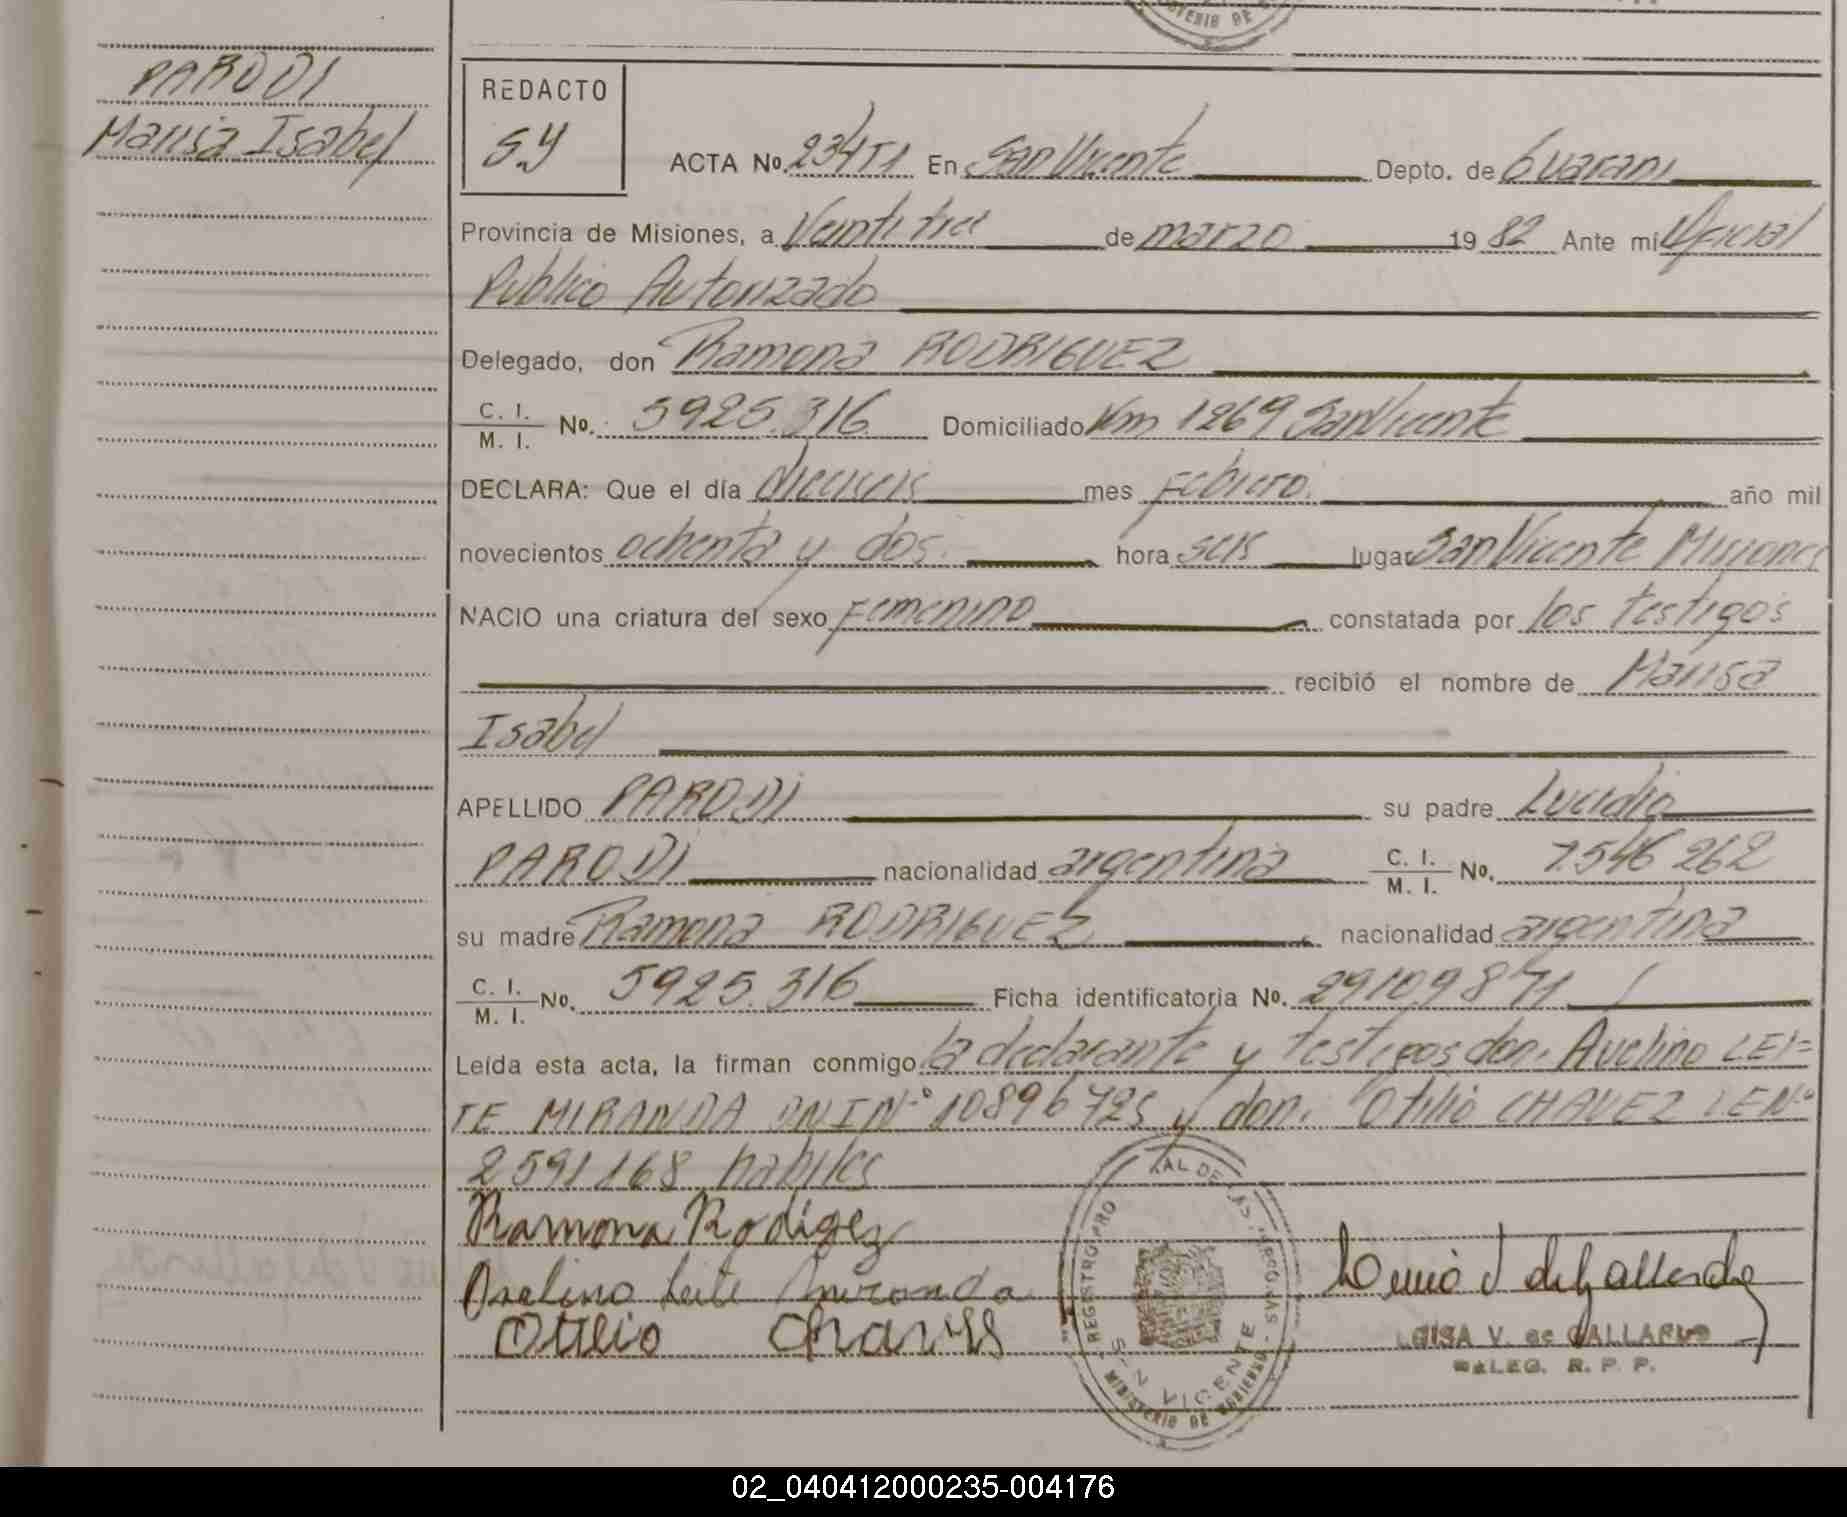 PARODI
Marisa Isabel
REDACTO
S.Y
ACTA No. 234T1 En San Vicente Depto. de Guarani
Provincia de Misiones, a Veintitres de marzo 1982 Ante mi Oficial
Publico Autorizado
Delegado, don Ramona RODRIGUEZ
C. I.
M. I. No. 5925.316 Domiciliado Km 1269 San Vicente
DECLARA: Que el día dieciseis mes Febrero. año mil
novecientos ochenta y dos. hora seis lugar San Vicente Misiones
NACIO una criatura del sexo Femenino constatada por los testigos
recibió el nombre de Marisa
Isabel
APELLIDO PARODI su padre Lucidio
PARODI nacionalidad argentina C. I.
M. I. No. 7.546 262
su madre Ramona RODRIGUEZ nacionalidad argentina
C. I.
M. I. No. 5925.316 Ficha identificatoria No. 29109871
Leída esta acta, la firman conmigo la declarante y testigos don. Avelino LEI=
TE MIRANDA DNI Nº 10896725 y don. Otilio CHAVEZ LE Nº
2591168 habiles
Ramona Rodigez
Avelino Leite Miranda
Otilio Chaves
REGISTRO PRO AL DE LAS PERSONAS
SAN VICENTE
MINISTERIO DE GOBIERNO
LUISA V. de GALLARDO
DELEG. R. P. P.
MINISTERIO DE
02_040412000235-004176